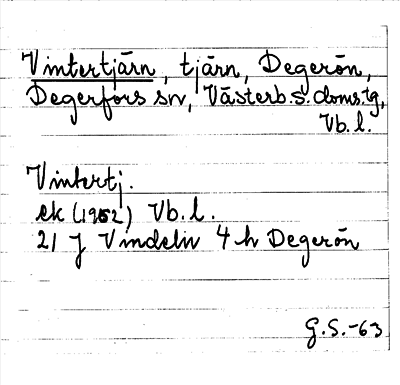 Vintertjärn, tjärn, Degerön,
Degerfors sn, Västerb.s. doms.tg,
Vb. l.
Vintertj.
ek (1952) Vb. l.
21 J Vindeln 4 h Degerön
G.S.-63